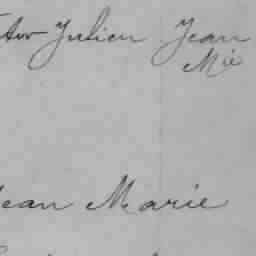 Julien Jean
Mie
Jean Marie